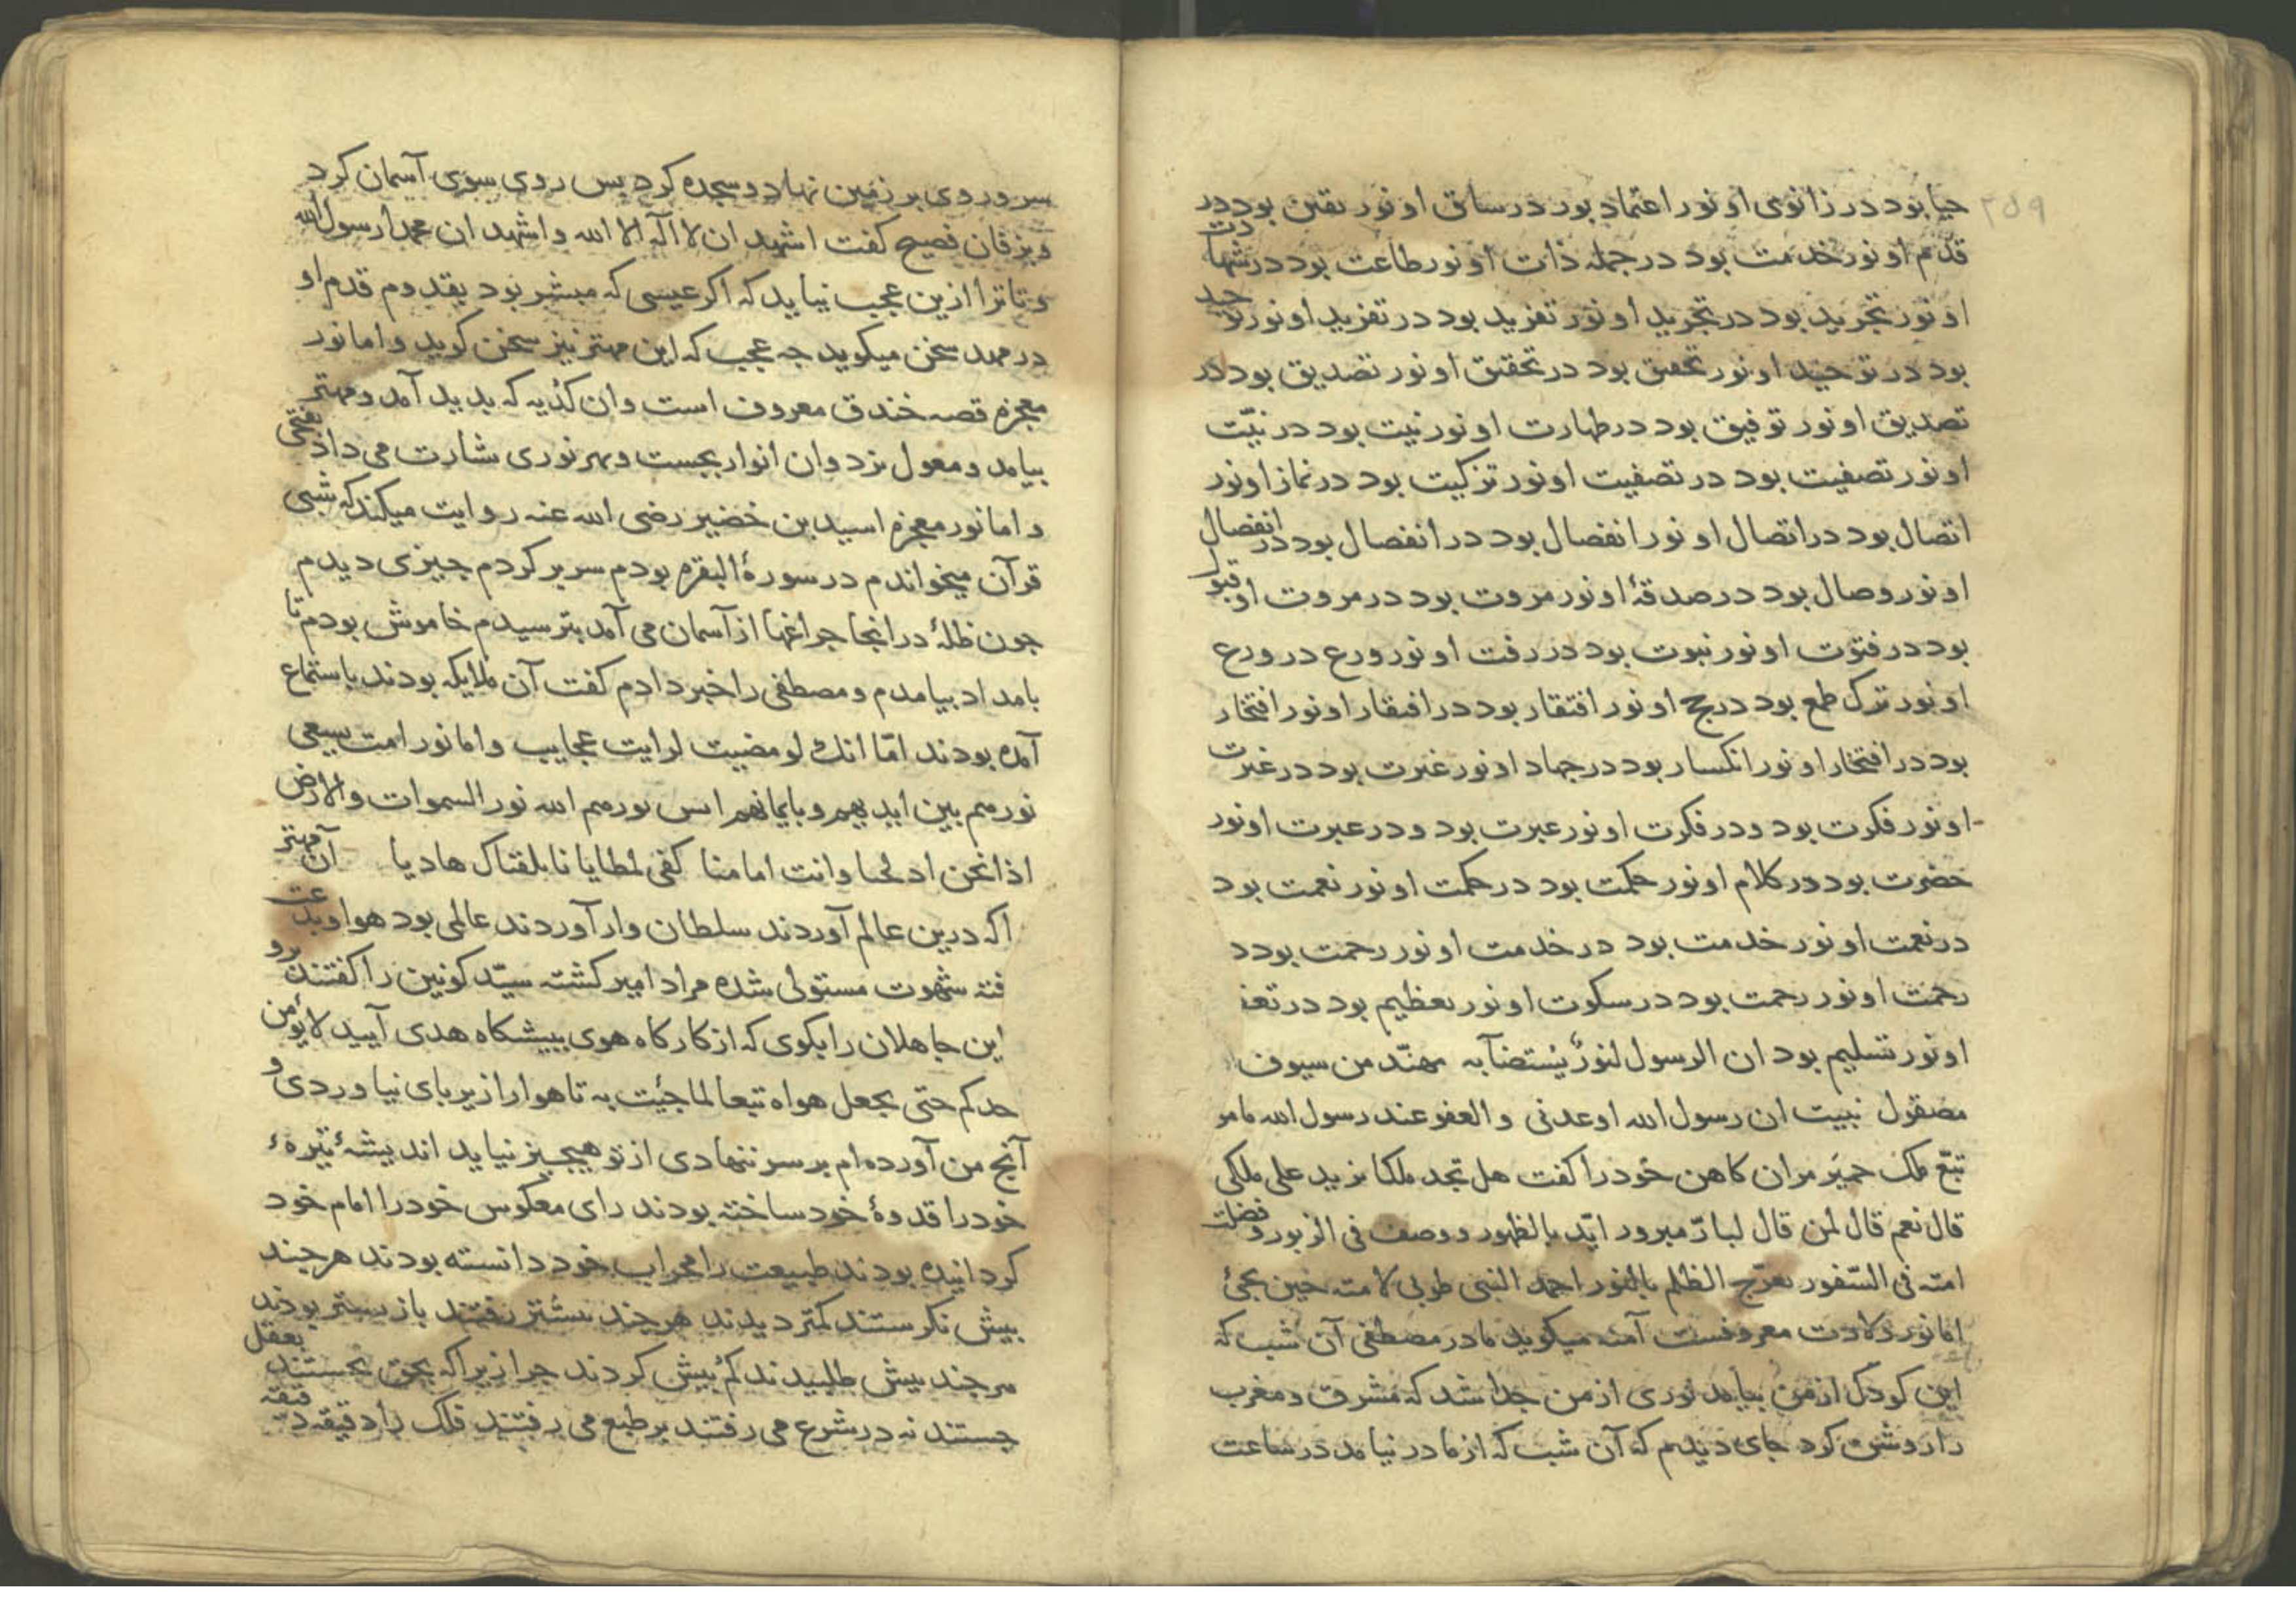 ۲۵۹
حیا بود در زانوی او نور اعتماد بود در ساق او نور یقین بود در
قدم او نور خدمت بود در جمله ذات او نور طاعت بود در شهادت
او نور تجرید بود در تجرید او نور تفرید بود در تفرید او نور توحید
بود در توحید او نور تحقیق بود در تحقیق او نور تصدیق بود در
تصدیق او نور توفیق بود در طهارت او نور نیت بود در نیّت
او نور تصفیت بود در تصفیت او نور تزکیت بود در نماز او نور
اتصال بود در اتصال او نور انفصال بود در انفصال بود در انفصال
او نور وصال بود در صدقهٔ او نور مروت بود در مروت او قبول
بود در فتوّت او نور نبوت بود در رفت او نور ورع در ورع
او نور ترک طمع بود در حج او نور افتقار بود در افتقار او نور افتخار
بود در افتخار او نور انکسار بود در جهاد او نور غیرت بود در غیرت
او نور فکرت بود و در فکرت او نور عبرت بود و در عبرت او نور
حضرت بود در کلام او نور حکمت بود در حکمت او نور نعمت بود
در نعمت او نور خدمت بود در خدمت او نور رحمت بود د
رحمت او نور رحمت بود در سکوت او نور تعظیم بود در تعظ
او نور تسلیم بود ان الرسول لنورٌ یستضآ به مهنّد من سیوف
مصقول نبیت ان رسول الله اوعدنی والعفو عند رسول الله مامو
تبّع ملک حمیَر مران کاهن خود را کفت هل تجد ملکا یزید علی ملکی
قال نعم قال لمن قال لبارّ مبرور ایّد بالظهور و وصف فی الزبور و فضلت
امته فی السّفور یفرّج الظلم بالنور احمد النبی طوبی لامته حین یجئ
اما نور ولادت معروفست آمنه میکوید مادر مصطفی آن شب که
این کودک از من بیامد نوری از من جدا شد که مشرق و مغرب
را روشن کرد جای دیدم که آن شب که از مادر بیامد در ساعت
سر و روی بر زمین نهاد و سجده کرد پس روی بسوی آسمان کرد
و بزفان فصیح کفت اشهد ان لا اله الا الله و اشهد ان محمدا رسول الله
و تا ترا ازین عجب نیاید که اکر عیسی که مبشر بود بقدوم قدم او
در مهد سخن میکوید چه عجب که این مهتر نیز سخن کوید و اما نور
معجزه قصه خندق معروف است و ان کدیه که بدید آمد و مهتر
بیامد و معول بزد و ان انوار بجست و بهر نوری بشارت می داد بفتحی
و اما نور معجزه اسید بن خضیر رضی الله عنه روایت میکند که شبی
قرآن میخواندم در سورة البقره بودم سر بر کردم چیزی دیدم
چون ظلهٔ در انجا چراغها از آسمان می آمد بترسیدم خاموش بودم تا
بامداد بیامدم و مصطفی را خبر دادم کفت آن ملایکه بودند باستماع
آمده بودند امّا انک لو مضیت لرایت عجایب و اما نور امت یسعی
نورهم بین ایدیهم و بایمانهم اس نورهم الله نور السموات والارض
اذا نحن ادلجنا وانت امامنا کفی لمطایانا بلقیاک هادیا آن مهتر
اکه درین عالم آوردند سلطان وار آوردند عالمی بود هوا و بدعت
فته شهوت مستولی شده مراد امیر کشته سیّد کونین را کفتند برو
این جاهلان را بکوی که از کارکاه هوی ببیشکاه هدی آیید لا یؤمن
حدکم حتی یجعل هواه تبعا لما جئت به تا هوا را زیر پای نیاوردی و
آنچ من آورده ام بر سر ننهادی از تو هیچیز نیاید اندیشهٔ تیرهٔ
خود را قدوهٔ خود ساخته بودند رای معکوس خود را امام خود
کردانیده بودند طبیعت را محراب خود دانسته بودند هرچند
بیش نکرستند کمتر دیدند هرچند بیشتر رفتند باز پستر بودند
هرچند بیش طلبیدند کم بیش کردند چرا زیرا که بحق نجستند بعقل
جستند نه در شرع می رفتند بر طبع می رفتند فلک را دقیقه دقیقه